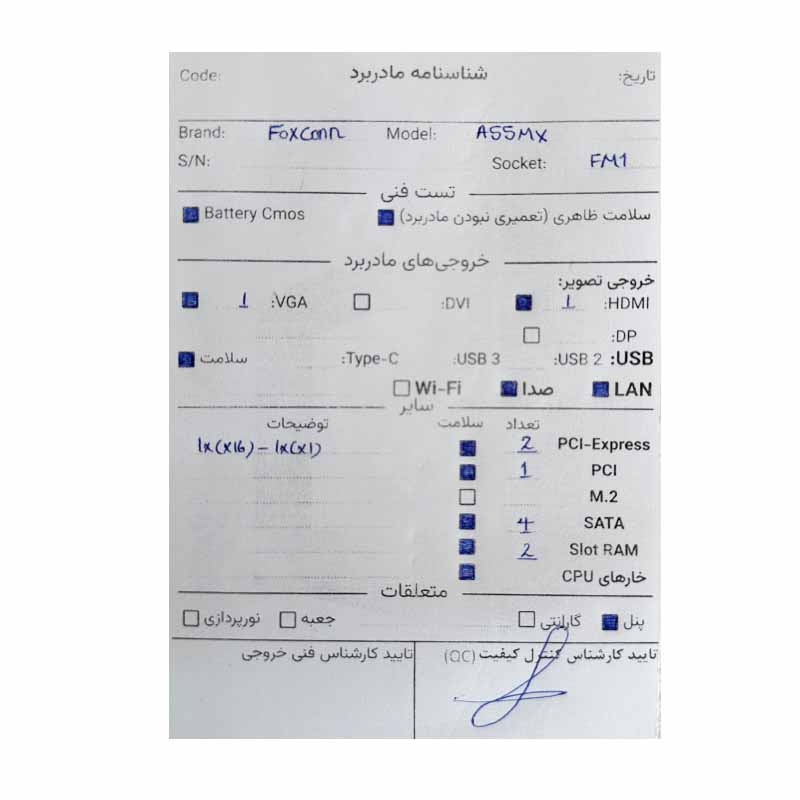 Code: شناسنامه مادربرد تاریخ:
Brand: Foxconn Model: A55MX
S/N: Socket: FM1
تست فنی
سلامت ظاهری (تعمیری نبودن مادربرد) Battery Cmos
خروجی‌های مادربرد
خروجی تصویر:
HDMI: 1 DVI: VGA: 1
DP:
USB: USB 2: USB 3: Type-C: سلامت
LAN صدا Wi-Fi
سایر
تعداد سلامت توضیحات
PCI-Express 2 1x(x16) - 1x(x1)
PCI 1
M.2
SATA 4
Slot RAM 2
خارهای CPU
متعلقات
پنل گارانتی جعبه نورپردازی
تایید کارشناس کنترل کیفیت (QC) تایید کارشناس فنی خروجی